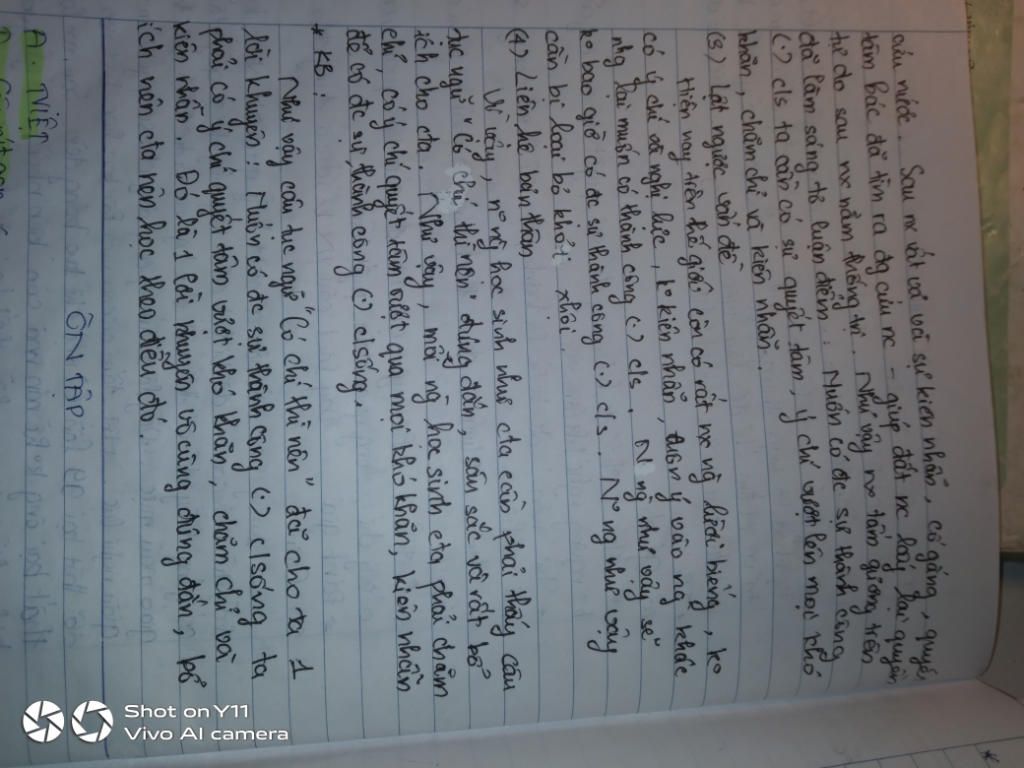 cứu nước. Sau nx vất vả và sự kiên nhẫn, cố gắng, quyết
tâm bác đã tìm ra đg cứu nc - giúp đất nc lấy lại quyền
tự do sau nx năm thống trị. Như vậy nx tấm gương trên
đã làm sáng tỏ luận điểm. Muốn có đc sự thành công
(.) c/s ta cần có sự quyết tâm, ý chí vượt lên mọi khó
khăn, chăm chỉ và kiên nhẫn.
(3) Lật ngược vấn đề
Hiện nay trên thế giới còn có rất nx ng lười biếng, ko
có ý chí và nghị lực, ko kiên nhẫn, ý vào ng khác
nhg lại muốn có thành công (.) c/s. N ng như vậy sẽ
ko bao giờ có đc sự thành công (.) c/s. N~ ng như vậy
cần bị loại bỏ khỏi xhội.
(4) Liên hệ bản thân
Vì vậy, n~ ng học sinh như cta cần phải thấy câu
tục ngữ "Có chí thì nên" đúng đắn, sâu sắc và rất bổ
ích cho cta. Như vậy, mỗi ng học sinh cta phải chăm
chỉ, có ý chí quyết tâm vượt qua mọi khó khăn, kiên nhẫn
để có đc sự thành công (.) c/sống.
* KB:
Như vậy câu tục ngữ "Có chí thì nên" đã cho ta 1
lời khuyên: Muốn có đc sự thành công (.) c/sống ta
phải có ý chí quyết tâm vượt khó khăn, chăm chỉ và
kiên nhẫn. Đó là 1 lời khuyên vô cùng đúng đắn, bổ
ích nên cta nên học theo điều đó.
ÔN TẬP
A. TVIỆT
Shot on Y11
Vivo AI camera